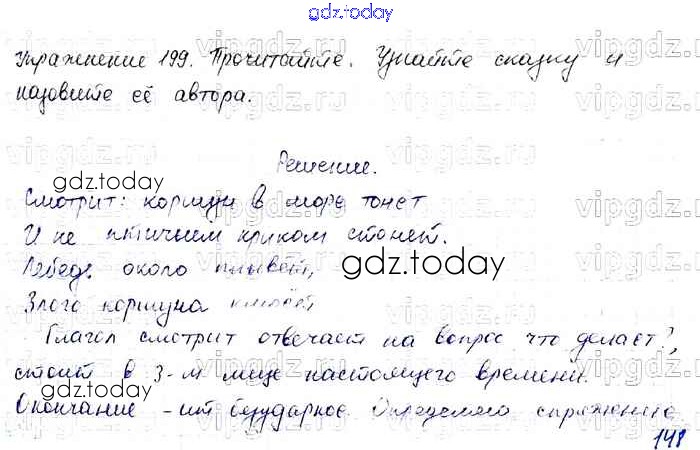 gdz.today
Упражнение 199. Прочитайте. Узнайте сказку и
назовите её автора.
Решение.
gdz.today
Смотрит: коршун в море тонет
И не птичьим криком стонет.
Лебедь около плывёт,
gdz.today
Злого коршуна клюёт
gdz.today
Глагол смотрит отвечает на вопрос что делает?,
стоит в 3-м лице настоящего времени.
gdz.today
Окончание -ит безударное. Определяю спряжение
148
vipgdz.ru